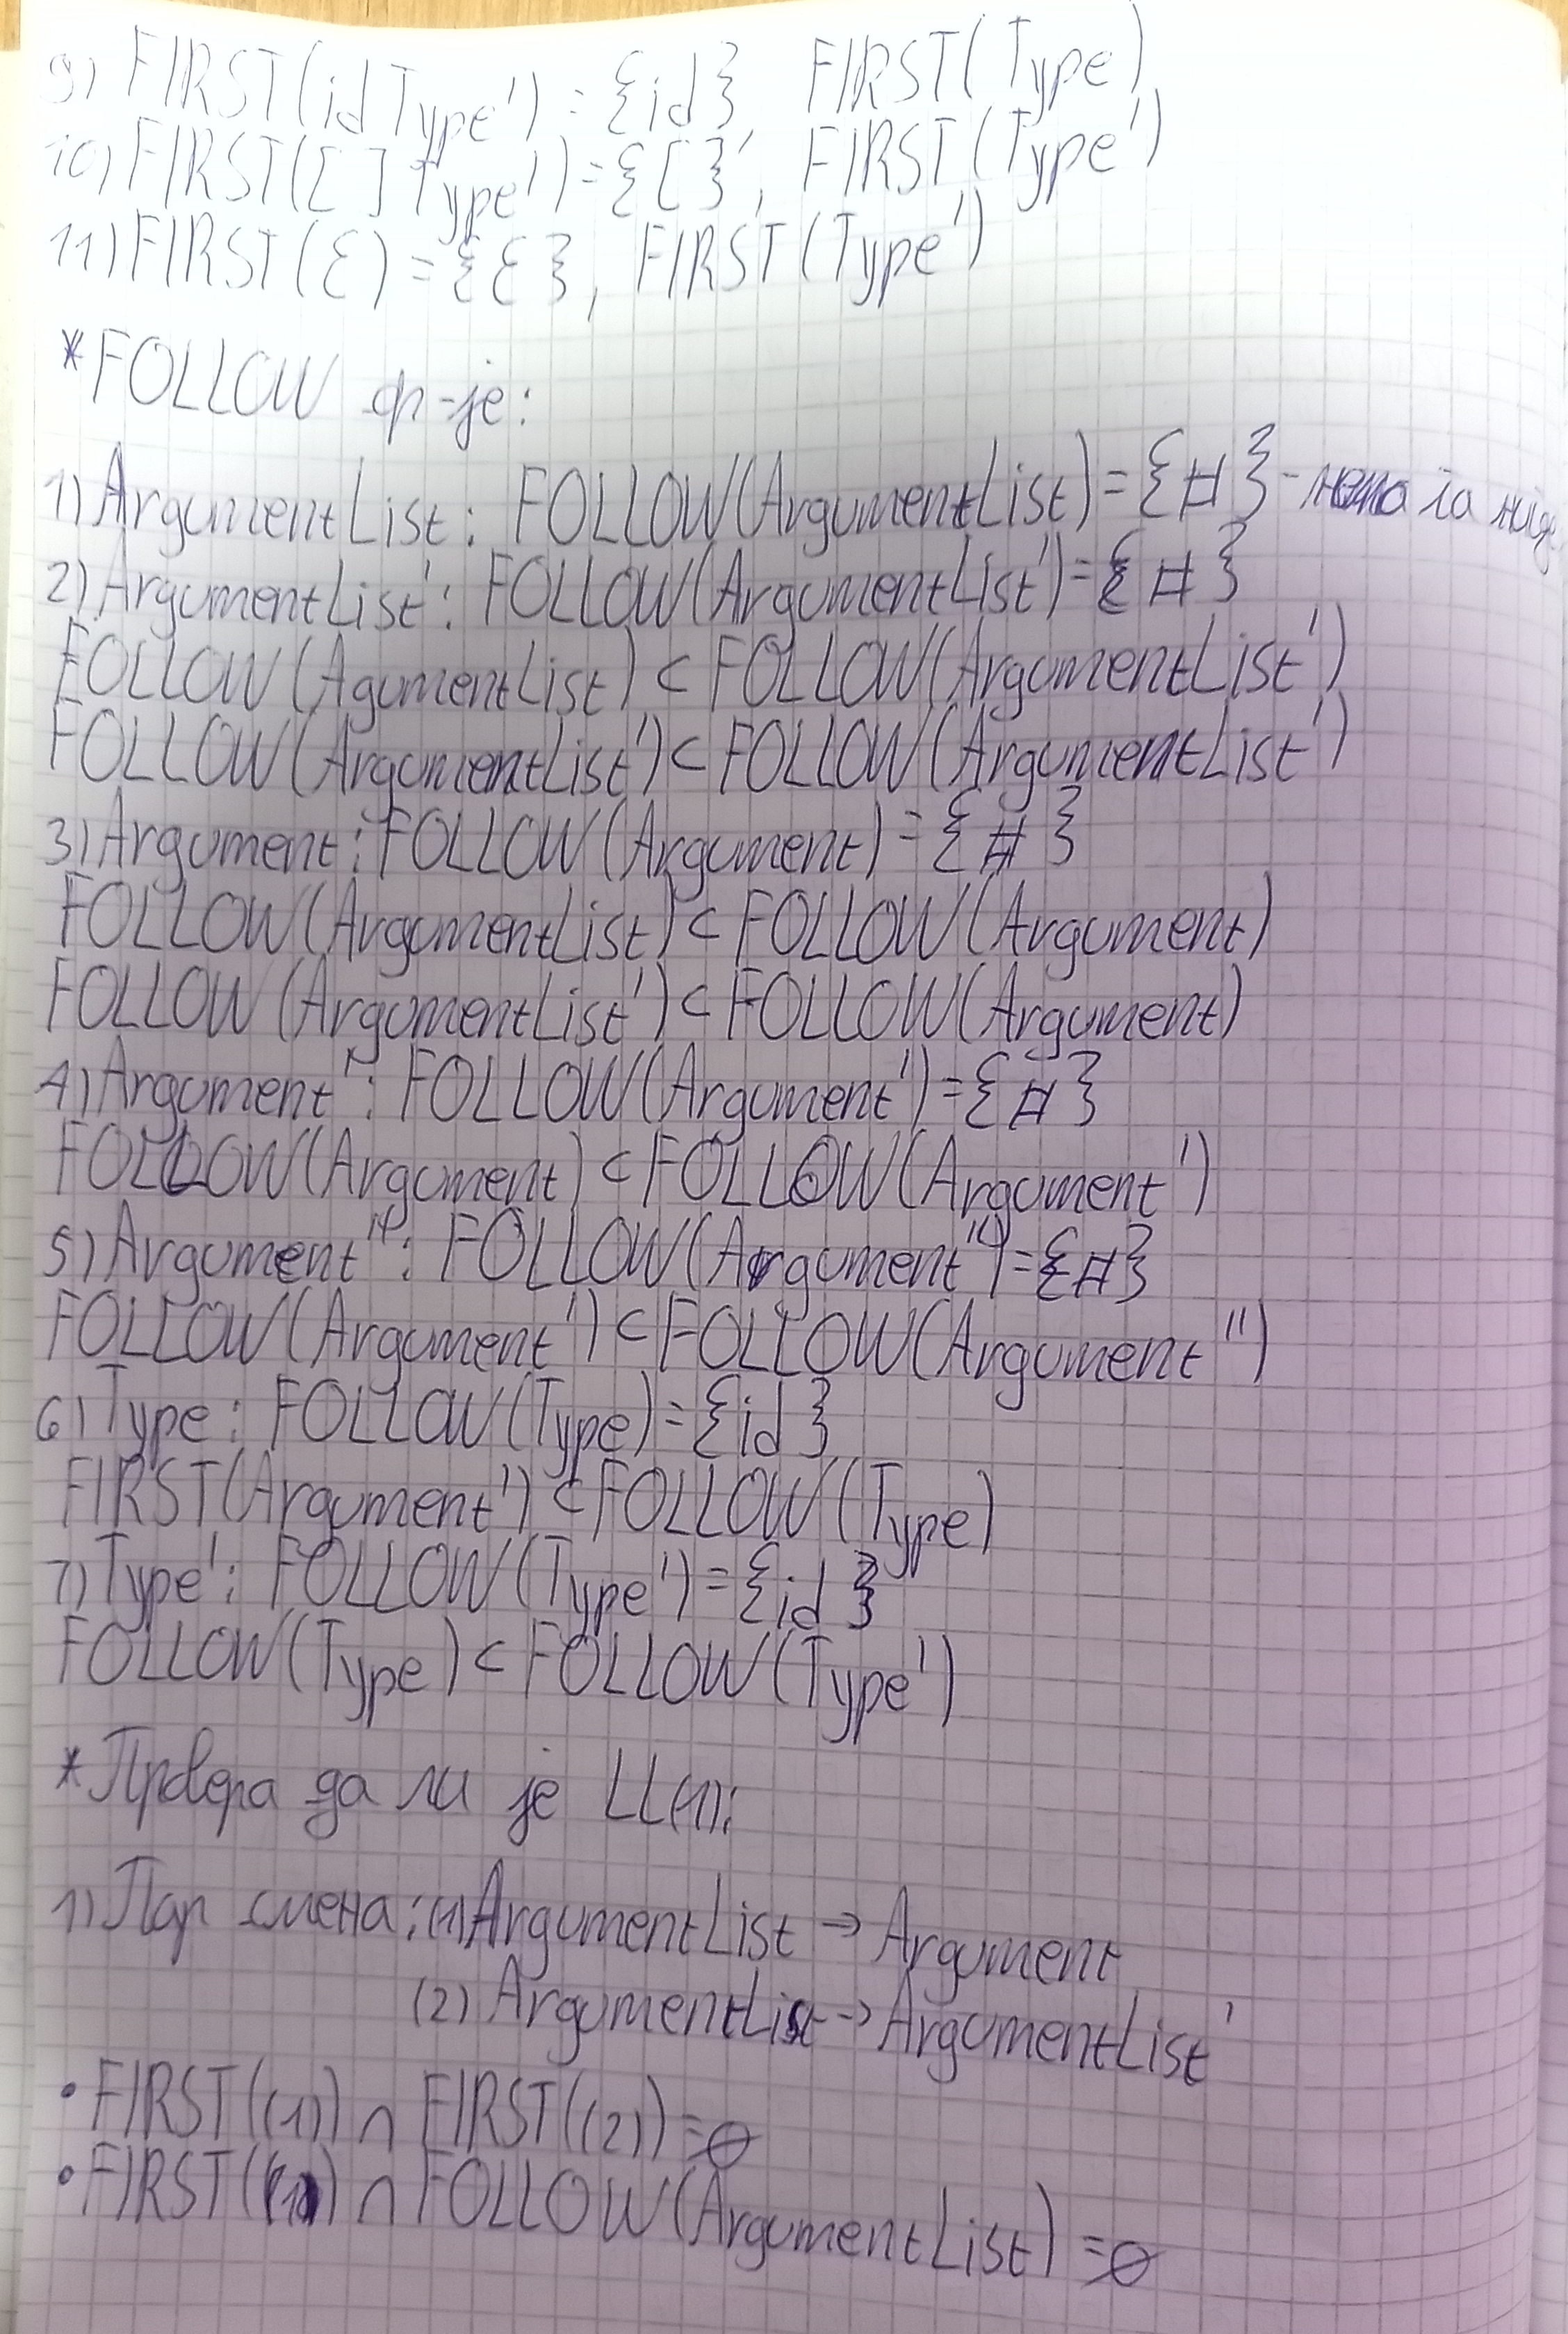 9) FIRST(id Type') = {id} FIRST(Type)
10) FIRST([ ] Type') = {[}, FIRST(Type')
11) FIRST(ε) = {ε}, FIRST(Type')
*FOLLOW ф-je:
1) ArgumentList: FOLLOW(ArgumentList) = {#} - нема га
2) ArgumentList': FOLLOW(ArgumentList') = {#}
FOLLOW(AgumentList) ⊂ FOLLOW(ArgumentList')
FOLLOW(ArgumentList') ⊂ FOLLOW(ArgumentList')
3) Argument: FOLLOW(Argument) = {#}
FOLLOW(ArgumentList) ⊂ FOLLOW(Argument)
FOLLOW(ArgumentList') ⊂ FOLLOW(Argument)
4) Argument': FOLLOW(Argument') = {#}
FOLLOW(Argument) ⊂ FOLLOW(Argument')
5) Argument'': FOLLOW(Argument'') = {#}
FOLLOW(Argument') ⊂ FOLLOW(Argument'')
6) Type: FOLLOW(Type) = {id}
FIRST(Argument') ⊂ FOLLOW(Type)
7) Type': FOLLOW(Type') = {id}
FOLLOW(Type) ⊂ FOLLOW(Type')
*Провера да ли је LL(1):
1) Пар смена: (1) ArgumentList → Argument
(2) ArgumentList → ArgumentList'
• FIRST((1)) ∩ FIRST((2)) = ∅
• FIRST((1)) ∩ FOLLOW(ArgumentList) = ∅